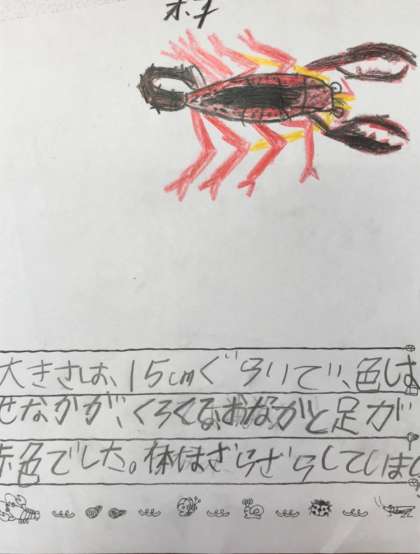 大きさは、15cmぐらいで、色は
せなかが、くろくて、おなかと足が
赤色でした。体はざらざらしていまし